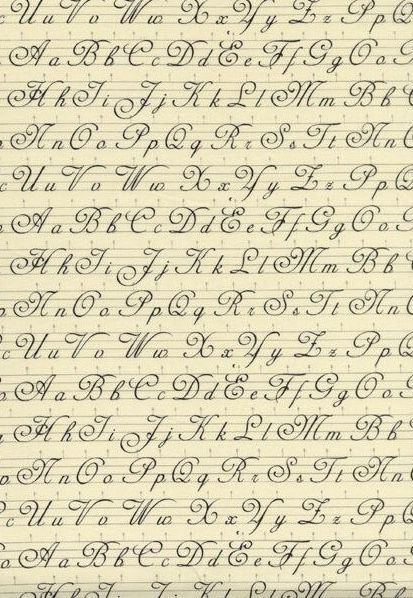 c Uu Vv Ww Xx Yy Zz Pp Q
Aa Bb Cc Dd Ee Ff Gg Oo
Hh Ii Jj Kk Ll Mm Bb
o Nn Oo Pp Qq Rr Ss Tt Nn O
c Uu Vv Ww Xx Yy Zz Pp Q
Aa Bb Cc Dd Ee Ff Gg Oo
Hh Ii Jj Kk Ll Mm Bb
o Nn Oo Pp Qq Rr Ss Tt Nn O
c Uu Vv Ww Xx Yy Zz Pp Q
Aa Bb Cc Dd Ee Ff Gg Oo
Hh Ii Jj Kk Ll Mm Bb
o Nn Oo Pp Qq Rr Ss Tt Nn O
c Uu Vv Ww Xx Yy Zz Pp Q
Aa Bb Cc Dd Ee Ff Gg Oo
Hh Ii Jj Kk Ll Mm Bb